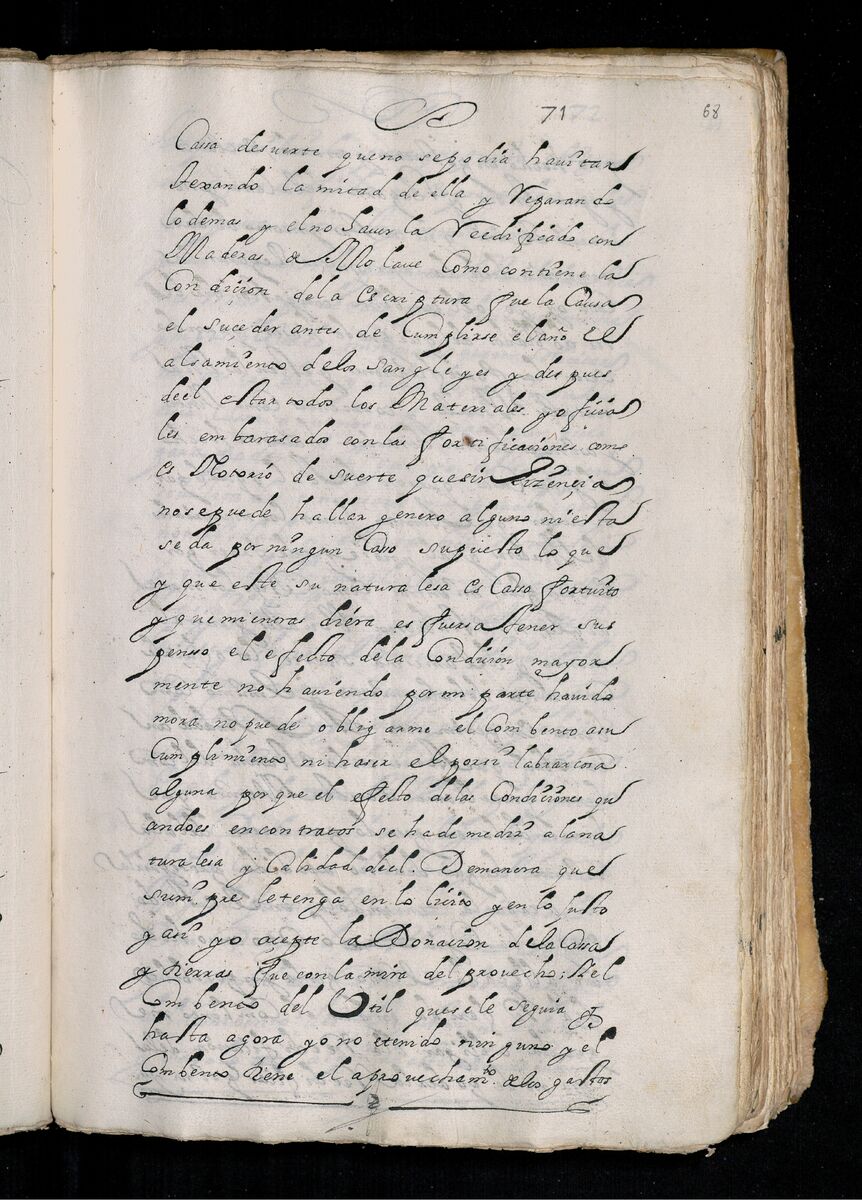 71
68
Cassa desuerte queno sepodia havitar
texando la mitad de ella y reparando
lo demas y el no haver la reedificado con
Maderas de Molave Como contiene la
Condicion dela Escriptura fue la Causa
el suçeder antes de Cumplirse el año el
alsamiento delos sangleyes y despues
deel estar todos los Materiales y ofiçia
les embarasados con las fortificaciones como
es Notorio de suerte quesin Lizençia
nosepuede hallar genero alguno ni esta
se da por ningun Caso supuesto lo que
y que este su naturalesa es Casso fortuito
y que mientras diéra es fuersa tener sus
pensso el efecto dela Condicion mayor
mente no haviendo por mi parte havido
mora no puede obligarme el Combento asu
Cumplimiento ni haser el porsi labrar cosa
alguna por que el efecto delas Condiciones qu
andoes en contratos se hade medir alana
turalesa y Calidad deel. Demanera que
siempre letenga en lo liçito y en lo justo
y asi yo acepte la Donacion dela Cassa
y tierras fue con la mira del provecho; y el
Combento del Util quesele seguia y
hasta agora yo no etenido ninguno y el
Combento tiene el aprovecham.to de los gastos